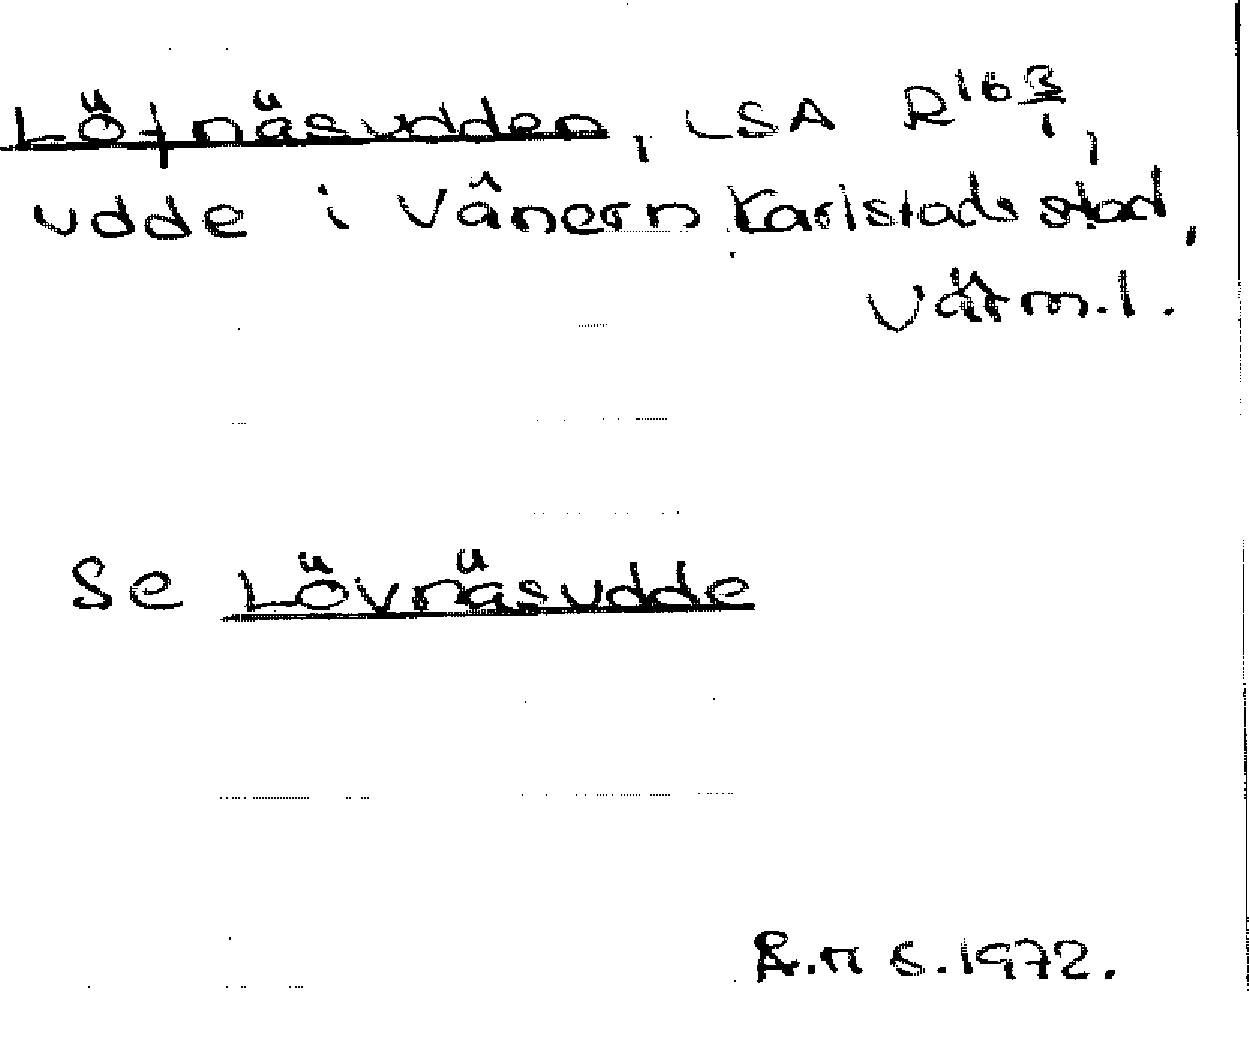 Löfnäsudden, LSA R16 3/1,
udde i Vänern Karlstads stad,
Värml.
Se Lövnäsudde
R.n S.1972.